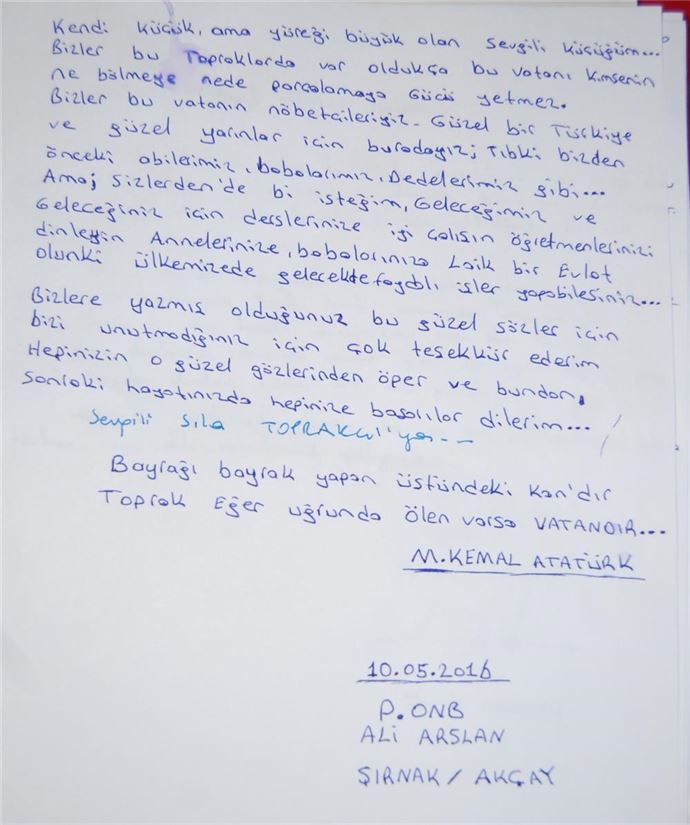 Kendi küçük, ama yüreği büyük olan sevgili küçüğüm...
Bizler bu Topraklarda var oldukça bu vatanı kimsenin
ne bölmeye nede parçalamaya Gücü yetmez.
Bizler bu vatanın nöbetçileriyiz. Güzel bir Türkiye
ve güzel yarınlar için buradayız; Tıbkı bizden
önceki abilerimiz, babalarımız, Dedelerimiz gibi...
Amaç sizlerden'de bi isteğim, Geleceğimiz ve
Geleceğiniz için derslerinize iyi çalışın öğretmenlerinizi
dinleyin Annelerinize, babalarınıza Laik bir Evlat
olunki ülkemizede gelecekte faydalı işler yapabilesiniz...
Bizlere yazmış olduğunuz bu güzel sözler için
bizi unutmadığınız için çok teşekkür ederim
Hepinizin o güzel gözlerinden öper ve bundan,
sonraki hayatınızda hepinize başarılar dilerim...
Sevgili Sıla TOPRAKÇI'ya...
Bayrağı bayrak yapan üstündeki kan'dır
Toprak Eğer uğrunda ölen varsa VATANDIR...
M.KEMAL ATATÜRK
10.05.2016
P.ONB
ALİ ARSLAN
ŞIRNAK / AKÇAY